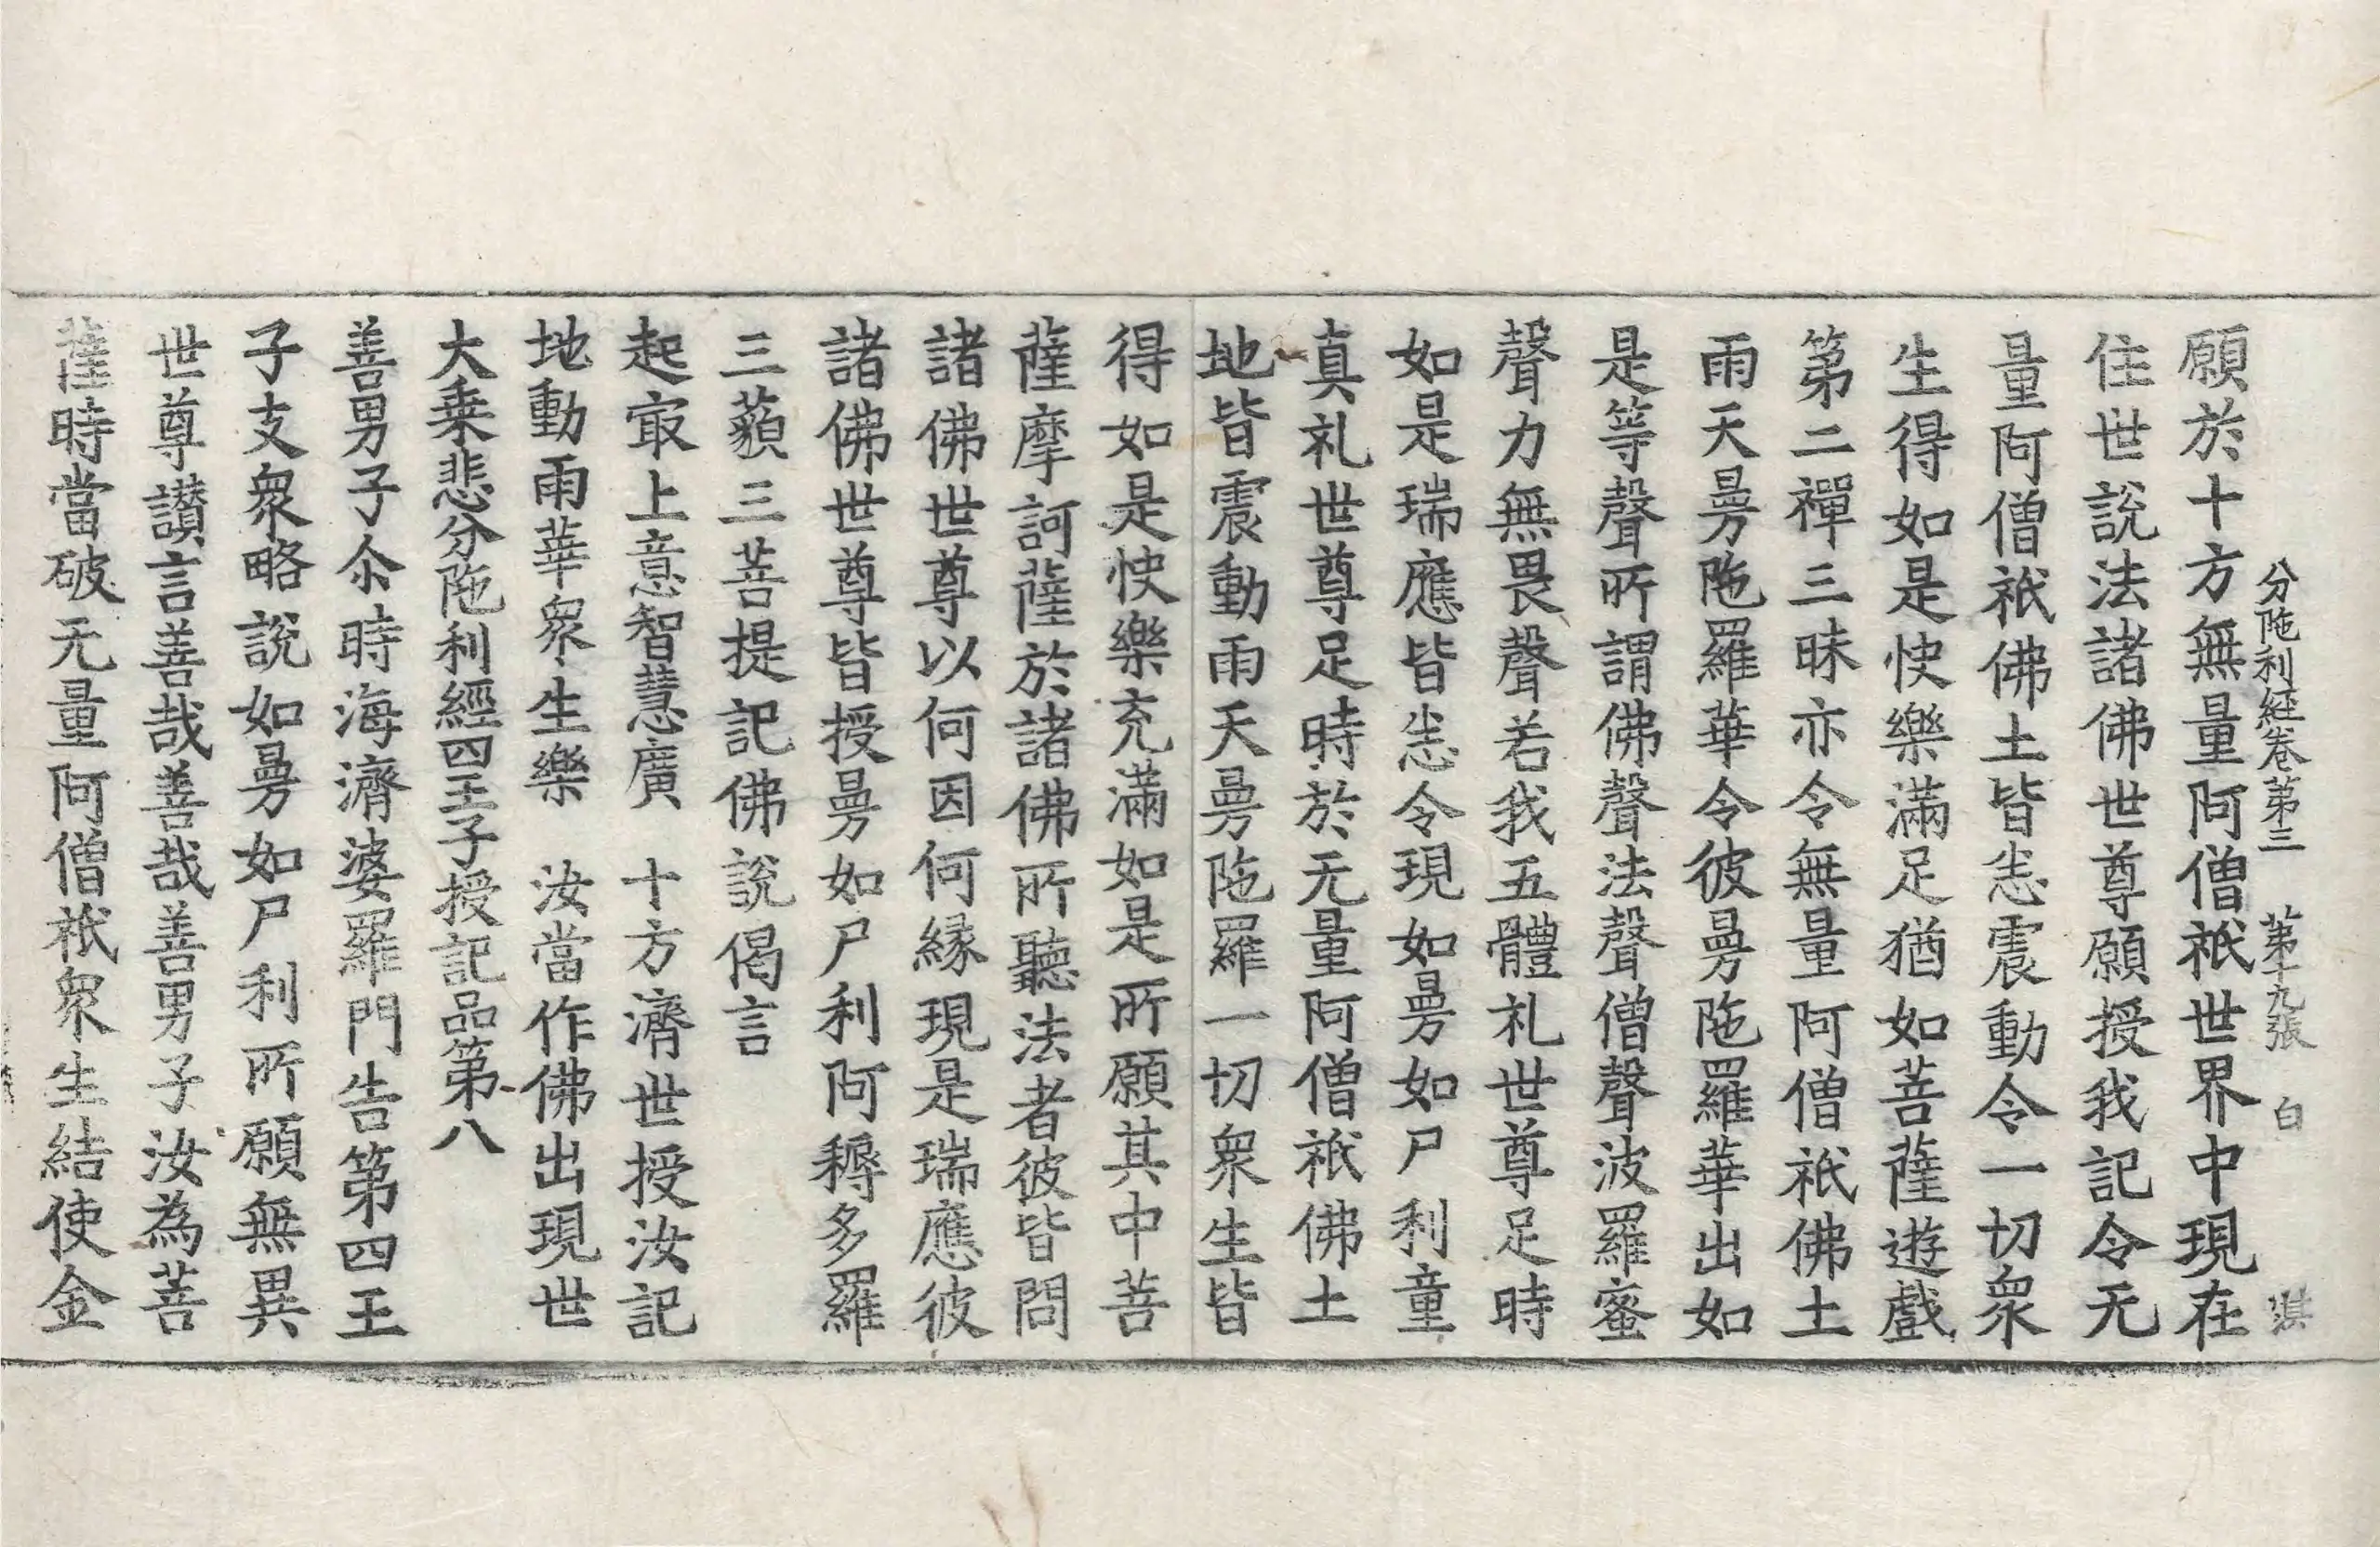 分陁利經卷第三　第十九張　白　淇
願於十方無量阿僧祇世界中現在
住世說法諸佛世尊願授我記令无
量阿僧祇佛土皆恙震動令一切衆
生得如是快樂滿足猶如菩薩遊戲
第二禪三昧亦令無量阿僧祇佛土
雨天曼陁羅華令彼曼陁羅華出如
是等聲所謂佛聲法聲僧聲波羅蜜
聲力無畏聲若我五體礼世尊足時
如是瑞應皆恙令現如曼如尸利童
真礼世尊足時於无量阿僧祇佛土
地皆震動雨天曼陁羅一切衆生皆
得如是快樂充滿如是所願其中菩
薩摩訶薩於諸佛所聽法者彼皆問
諸佛世尊以何因何緣現是瑞應彼
諸佛世尊皆授曼如尸利阿耨多羅
三藐三菩提記佛說偈言
起㝡上意智慧廣　十方濟世授汝記
地動雨華衆生樂　汝當作佛出現世
大乗悲分陁利經四王子授記品第八
善男子尒時海濟婆羅門告第四王
子支衆略說如曼如尸利所願無異
世尊讃言善哉善哉善男子汝為菩
薩時當破无量阿僧祇衆生結使金